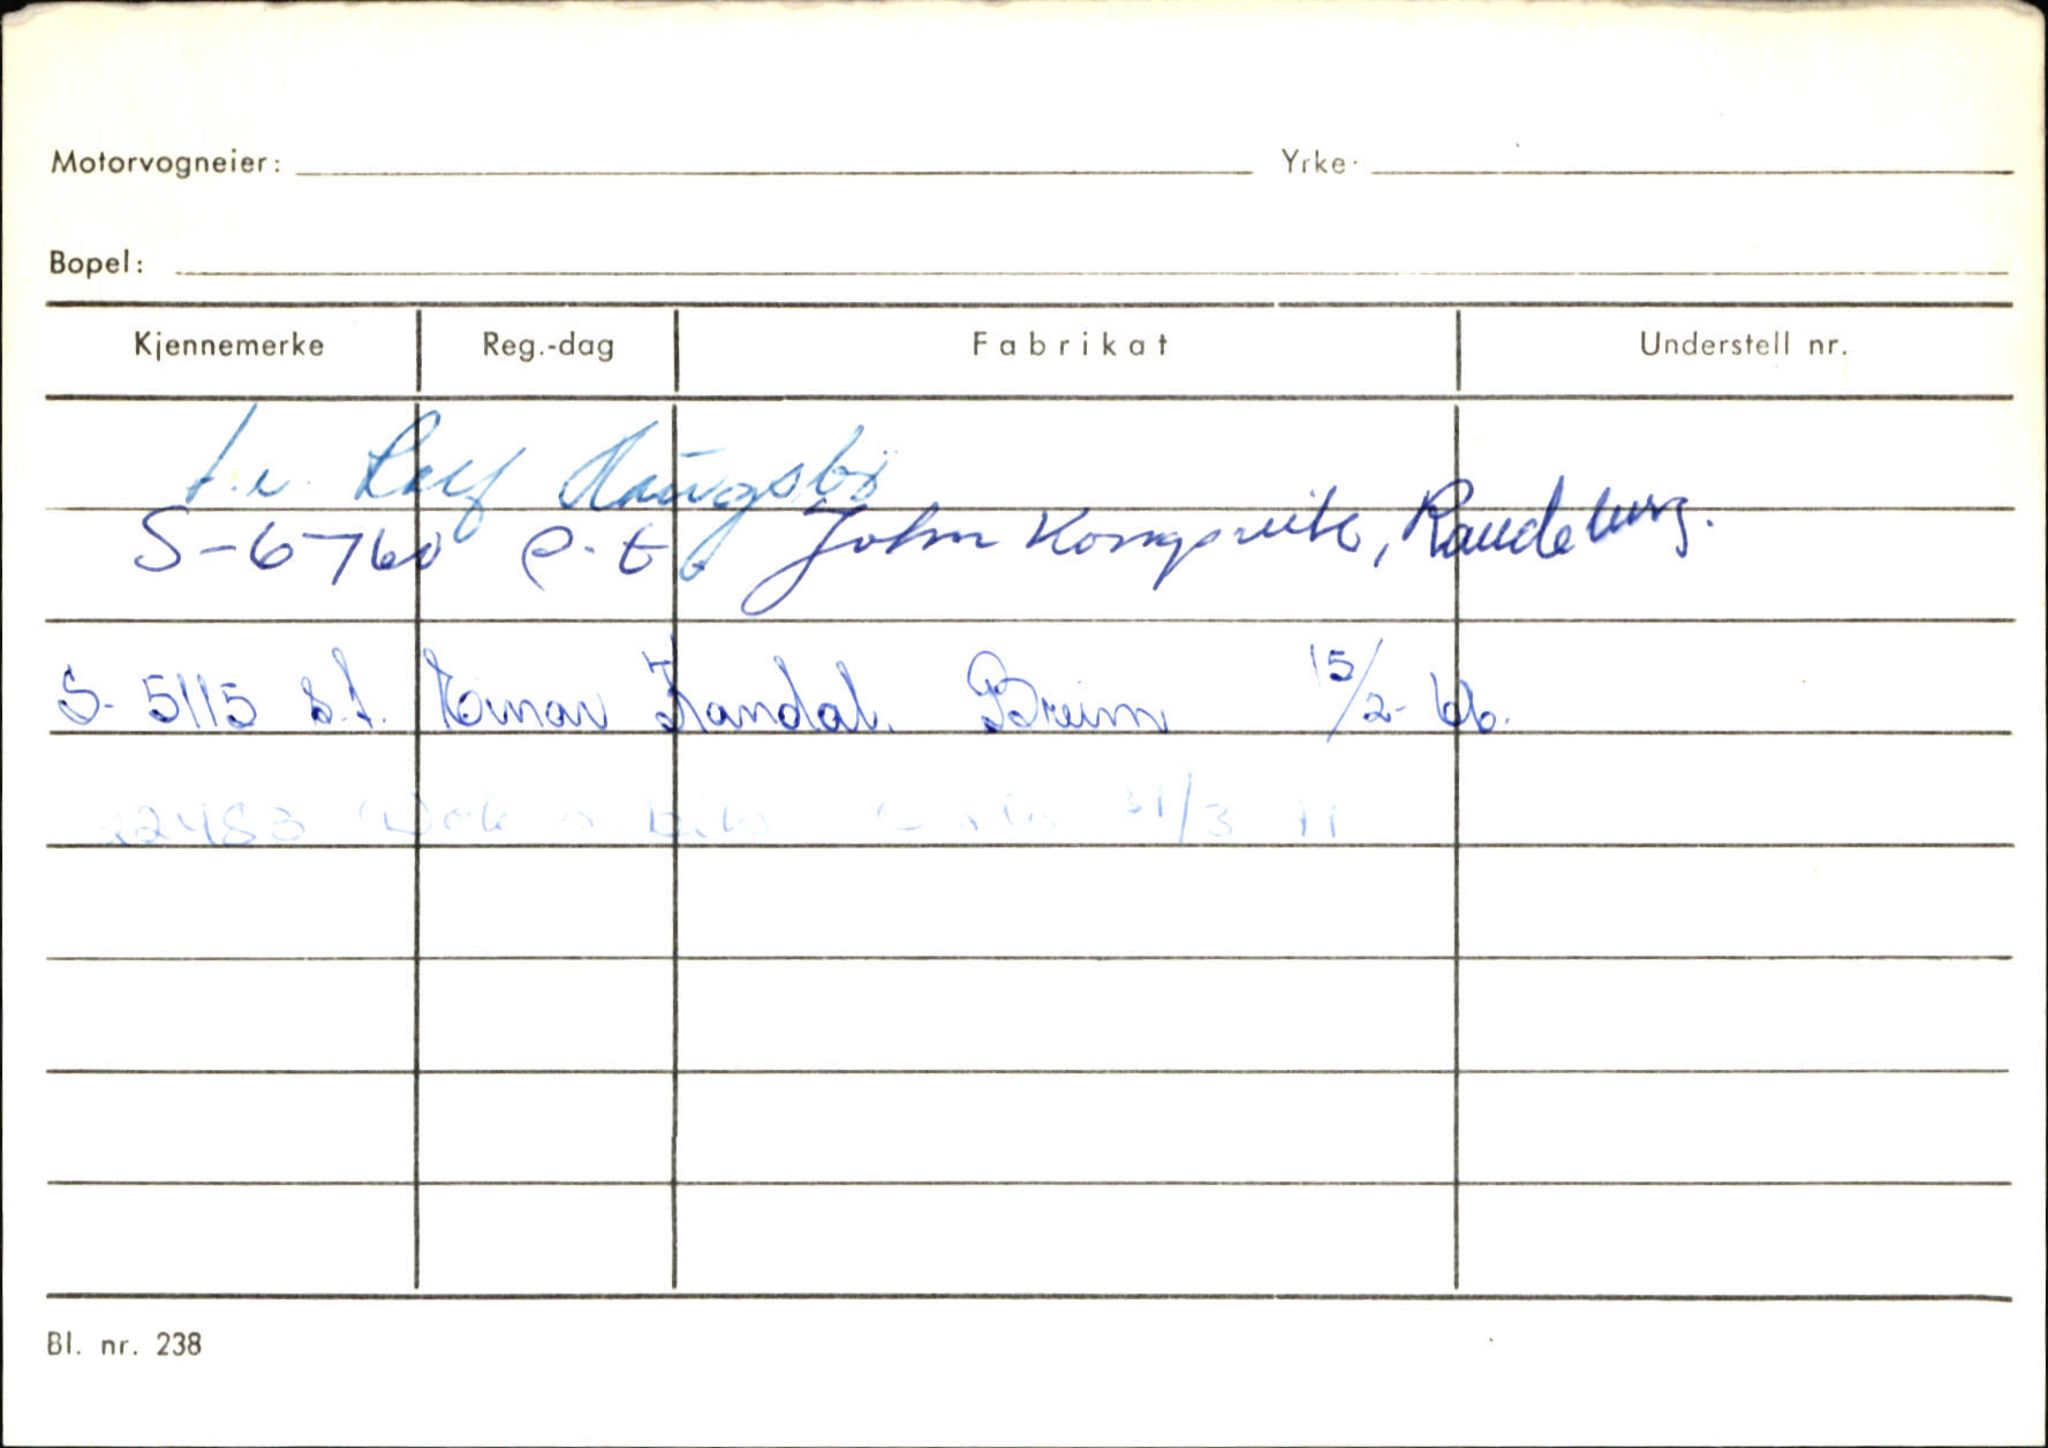 Motorvogneier: Yrke
Bopel:
Kjennemerke Reg.-dag Fabrikat Understell nr.
Haugsbö
S-6760 e.t. John Kongsvik, Raudeberg.
S-5115 s.f. Einar Kandal. Breim 15/2-66.
22483 31/3 71
Bl. nr. 238